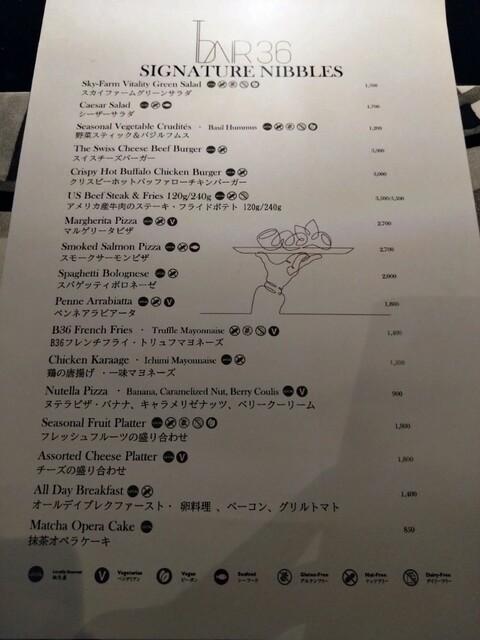 BAR 36
SIGNATURE NIBBLES
Sky-Farm Vitality Green Salad 1,700
スカイファームグリーンサラダ
Caesar Salad 1,700
シーザーサラダ
Seasonal Vegetable Crudités ・ Basil Hummus 1,200
野菜スティック&バジルフムス
The Swiss Cheese Beef Burger 3,000
スイスチーズバーガー
Crispy Hot Buffalo Chicken Burger 3,000
クリスピーホットバッファローチキンバーガー
US Beef Steak & Fries 120g/240g
アメリカ産牛肉のステーキ・フライドポテト 120g/240g
Margherita Pizza 2,700
マルゲリータピザ
Smoked Salmon Pizza 2,700
スモークサーモンピザ
Spaghetti Bolognese 2,000
スパゲッティボロネーゼ
Penne Arrabiatta 1,800
ペンネアラビアータ
B36 French Fries ・ Truffle Mayonnaise 1,400
B36フレンチフライ・トリュフマヨネーズ
Chicken Karaage ・ Ichimi Mayonnaise
鶏の唐揚げ ・一味マヨネーズ
Nutella Pizza ・ Banana, Caramelized Nut, Berry Coulis V 900
ヌテラピザ・バナナ、キャラメリゼナッツ、ベリークーリーム
Seasonal Fruit Platter 1,800
フレッシュフルーツの盛り合わせ
Assorted Cheese Platter V 1,800
チーズの盛り合わせ
All Day Breakfast 1,400
オールデイブレクファースト・ 卵料理 、ベーコン、グリルトマト
Matcha Opera Cake 850
抹茶オペラケーキ
Locally Sourced V Vegetarian Vegan Seafood Gluten-Free Nut-Free Dairy-Free
地生産 ベジタリアン ビーガン シーフード グルテンフリー ナッツフリー デイリーフリー